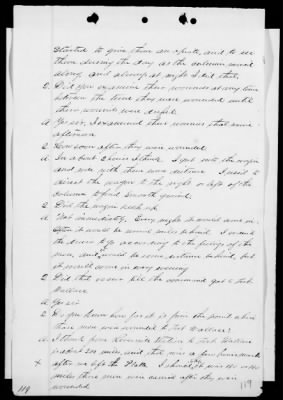 started to give them an opiate, and to see
them during the day as the column moved
along and always at night I did that.
Q Did you examine their wounds at any time
between the time they were wounded until
their wounds were dressed
A Yes sir, I examined their wounds that same
afternoon.
Q How soon after they were wounded
A In about 2 hours I think. I got into the wagon
and rode with them some distance. I used to
direct the wagon to the right or left of the
column to find smooth ground.
Q Did the wagon keep up
A Not immediately. Every night it would come in.
Often it would be some miles behind. I would
the driver to go according to the feelings of the
men, and it would be some distance behind, but
it would come in every evening
Q Did that occur till the command got to Fort
Wallace
A Yes sir
Q Do you know how far it is from the point where
these men were wounded to Fort Wallace?
A I think from Riverside Station to Fort Wallace
is about 200 miles, and that was a few hours march
after we left the Platte. I should
miles these men were carried after they were
wounded
119
119